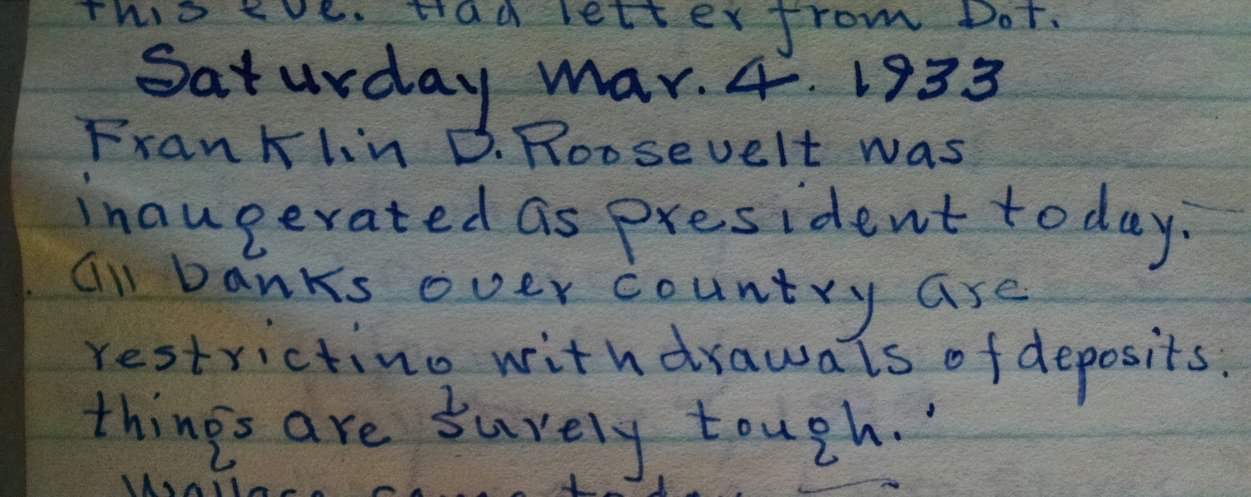 this eve. Had letter from Dot.
Saturday Mar. 4. 1933
Franklin D. Roosevelt was
inaugerated as president today.
All banks over country are
restricting withdrawals of deposits.
things are surely tough.
Wallace came today